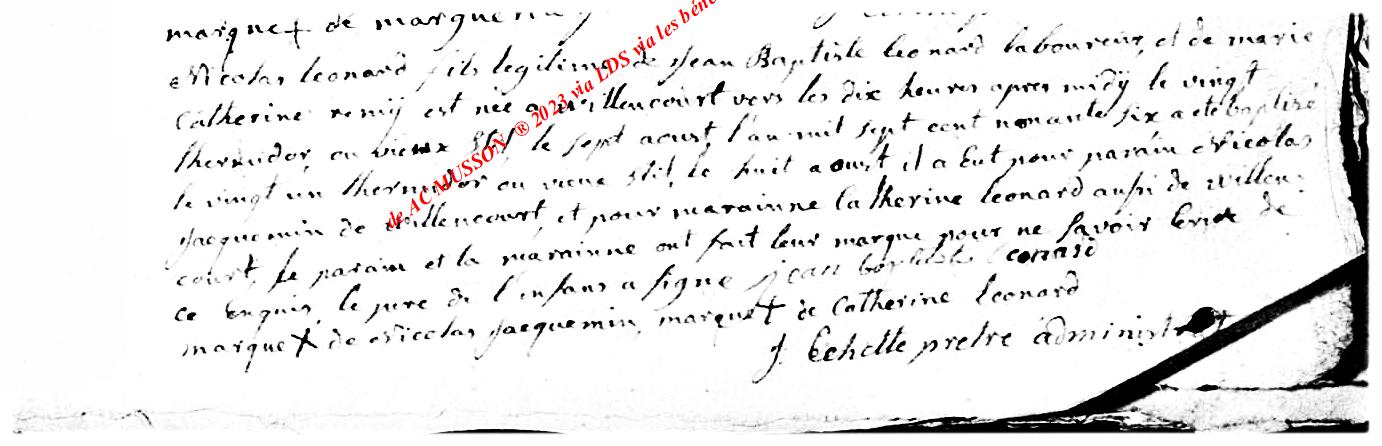 marque + de margueri
Nicolas leonard fils legitime de jean Baptiste leonard laboureur, et de marie
Catherine remy est née a willencourt vers les dix heures apres midÿ le vingt
thermidor, ou vieux stil, le sept aoust, l'an mil sept cent nonante six a eté baptisé
le vingt un thermidor ou vieux stil, le huit aoust il a Eut pour parain Nicolas
jacquemin de willencourt, et pour marainne Catherine leonard aussi de willen-
court, le parain et la marainne ont fait leur marque pour ne Savoir Ecrire de
ce Enquis, le pere de l'enfans a signé jean baptiste leonard
marque + de Nicolas jacquemin, marque + de Catherine leonard
j. Echelle pretre administrat
de ACMUSSON ® 2023 via LDS via les béné